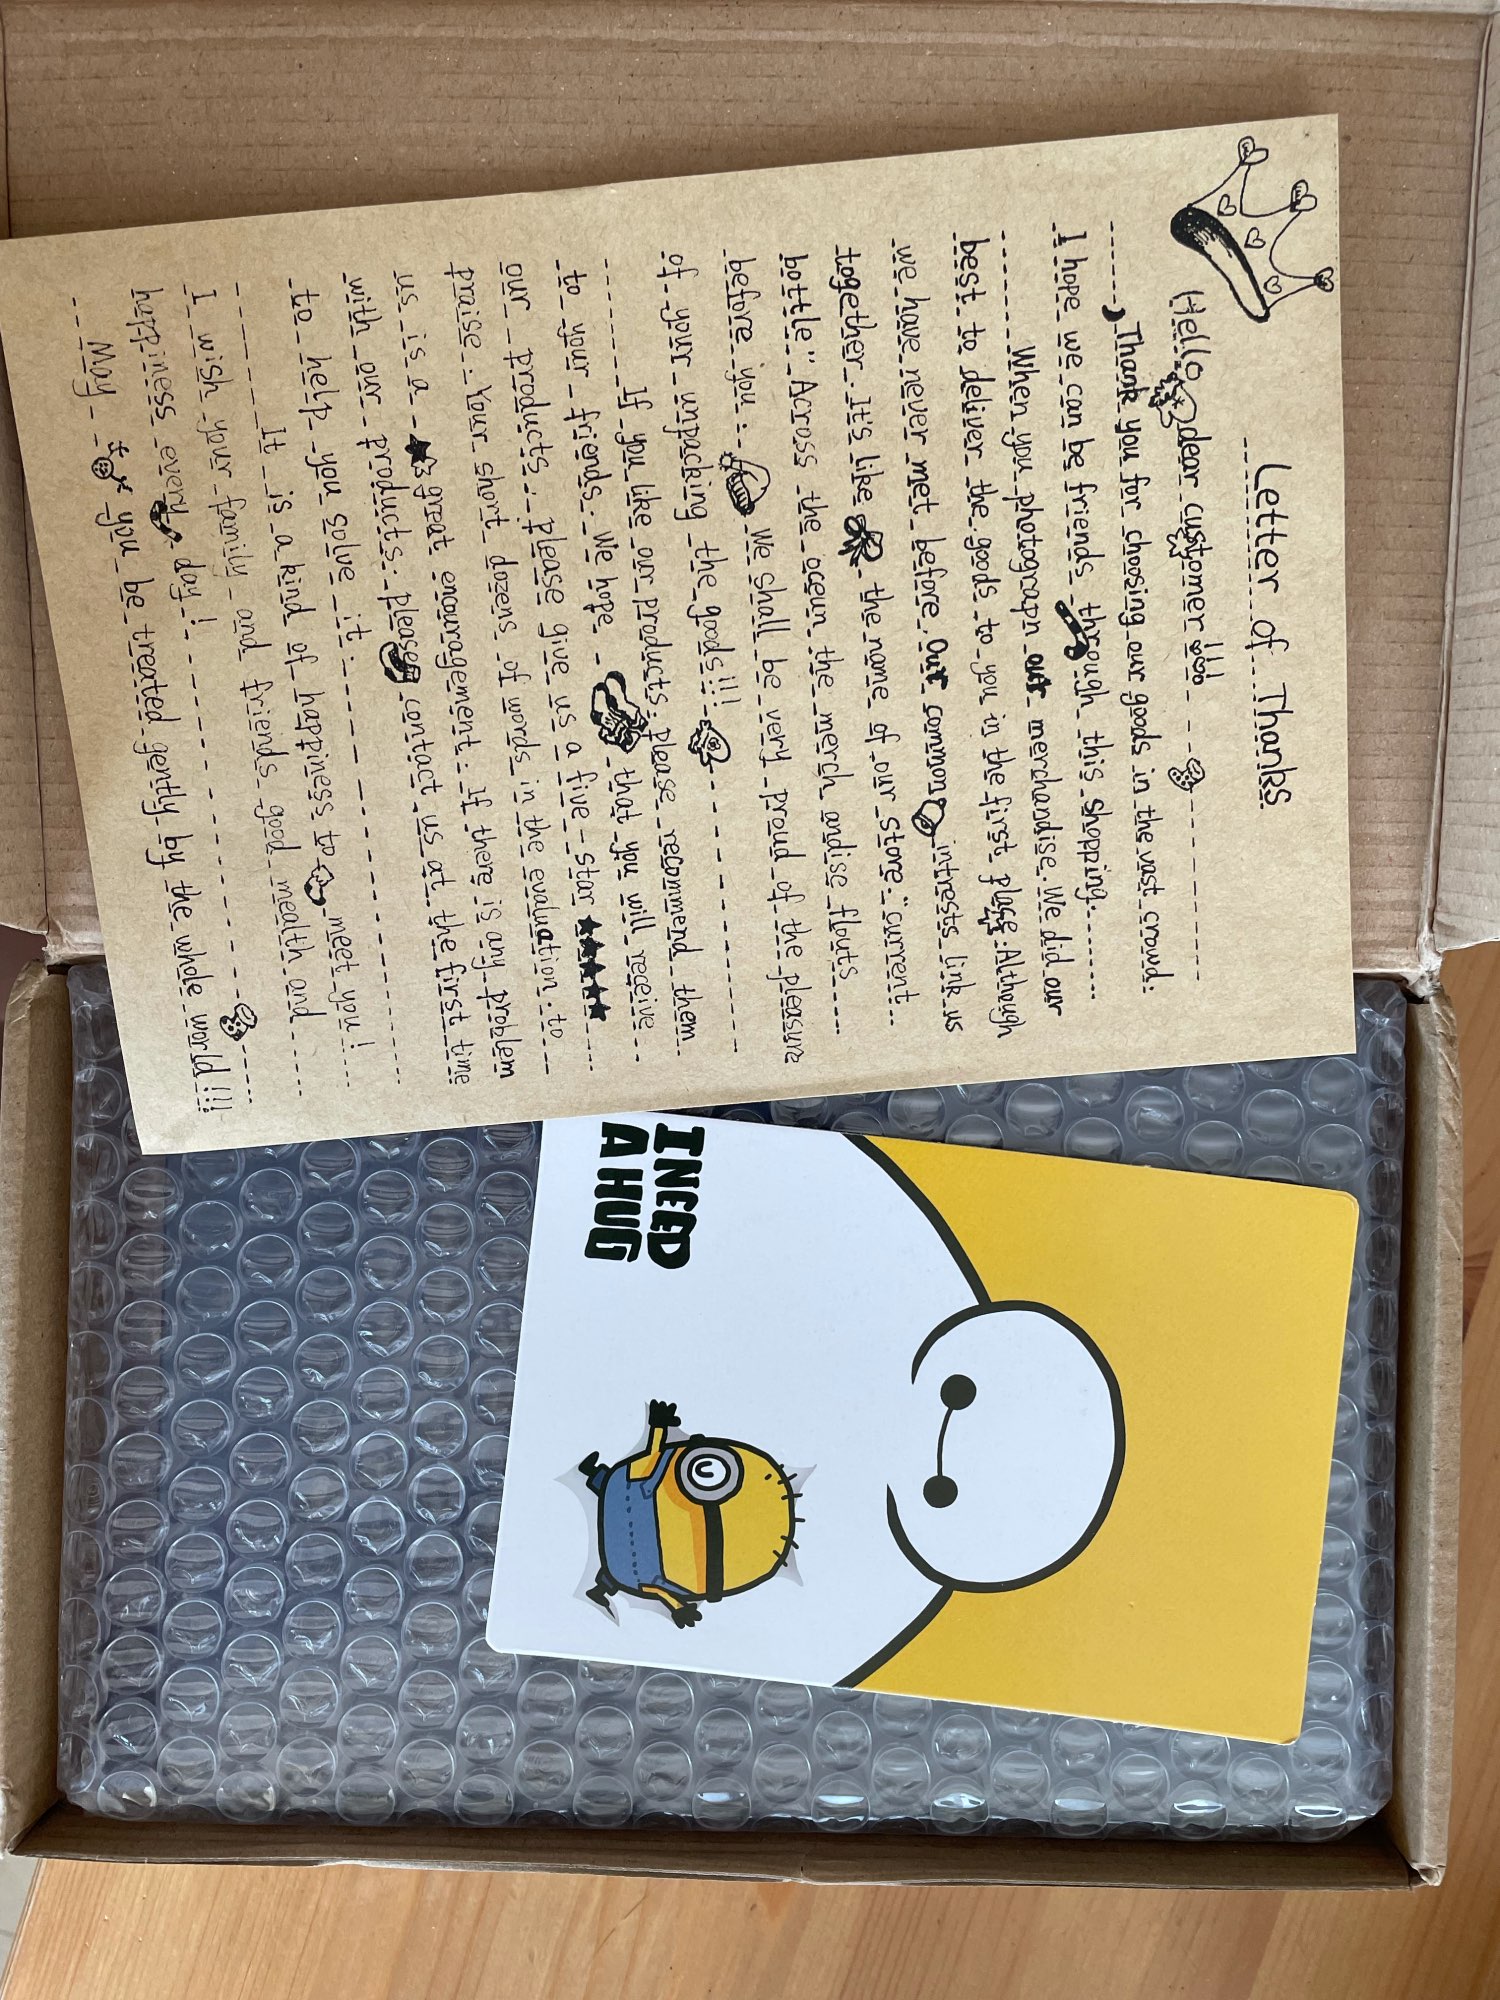 Letter of Thanks
Hello dear customer !!!
Thank you for choosing our goods in the vast crowd.
I hope we can be friends through this shopping.
When you photograph our merchandise. We did our
best to deliver the goods to you in the first place. Although
we have never met before. Our common intrests link us
together. It's like the name of our store: "current
bottle" Across the ocean the merchandise flaunts
before you. We shall be very proud of the pleasure
of your unpacking the goods!!!
If you like our products. please recommend them
to your friends. We hope that you will receive
our products. please give us a five-star ★★★★★
praise. Your short dozens of words in the evaluation. to
us is a great encouragement. If there is any problem
with our products. please contact us at the first time
to help you solve it.
It is a kind of happiness to meet you!
I wish your family and friends good health and
happiness every day!
May you be treated gently by the whole world !!!
I NEED
A HUG